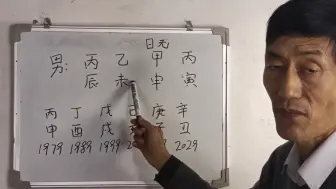 日元
男: 丙 乙 甲 丙
辰 未 申 寅
丙 丁 戊 己 庚 辛
申 酉 戌 子 丑
1979 1989 1999 2029